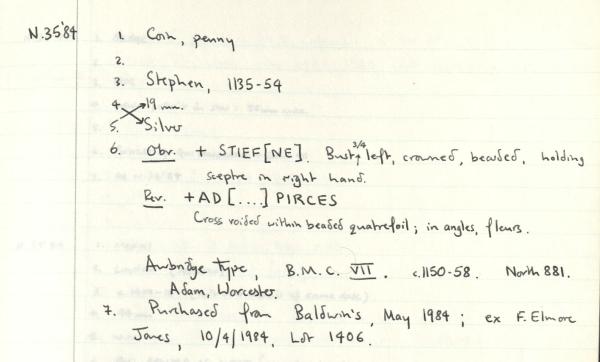 N.35'84 1. Coin, penny
2.
3. Stephen, 1135-54
4. 19 mm.
5. Silver
6. Obv. + STIEF[NE]. Bust 3/4 left, crowned, bearded, holding
sceptre in right hand.
Rev. +AD[....]PIRCES
Cross voided within beaded quatrefoil; in angles, fleurs.
Awbridge type, B.M.C. VII. c.1150-58. North 881.
Adam, Worcester.
7. Purchased from Baldwin's, May 1984; ex F. Elmore
Jones, 10/4/1984, Lot 1406.